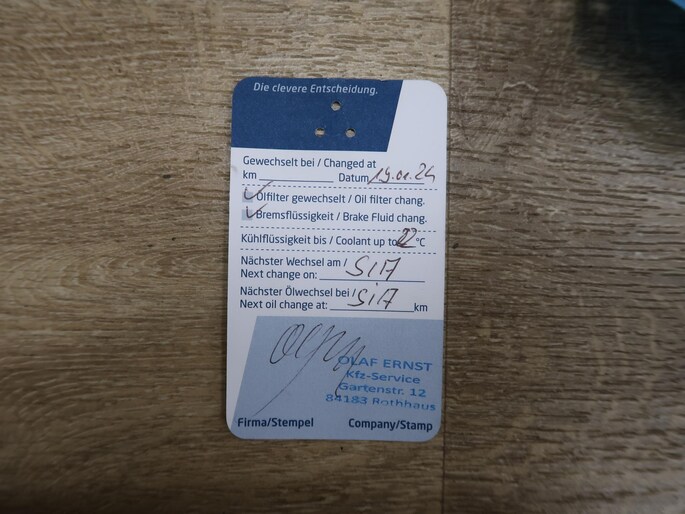 Die clevere Entscheidung.
Gewechselt bei / Changed at
km Datum 19.01.24
Ölfilter gewechselt / Oil filter chang.
Bremsflüssigkeit / Brake Fluid chang.
Kühlflüssigkeit bis / Coolant up to 22 °C
Nächster Wechsel am /
Next change on: SIA
Nächster Ölwechsel bei /
Next oil change at: SIA km
OLAF ERNST
Kfz-Service
Gartenstr. 12
84183 Rothhaus
Firma/Stempel Company/Stamp